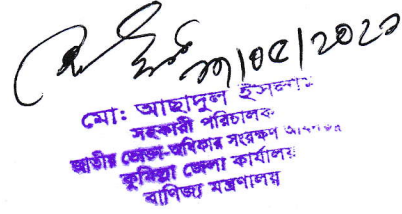 ১১/০৫/২০২১
মো: আছাদুল ইসলাম
সহকারী পরিচালক
জাতীয় ভোক্তা-অধিকার সংরক্ষণ অধিদপ্তর
কুমিল্লা জেলা কার্যালয়
বাণিজ্য মন্ত্রণালয়